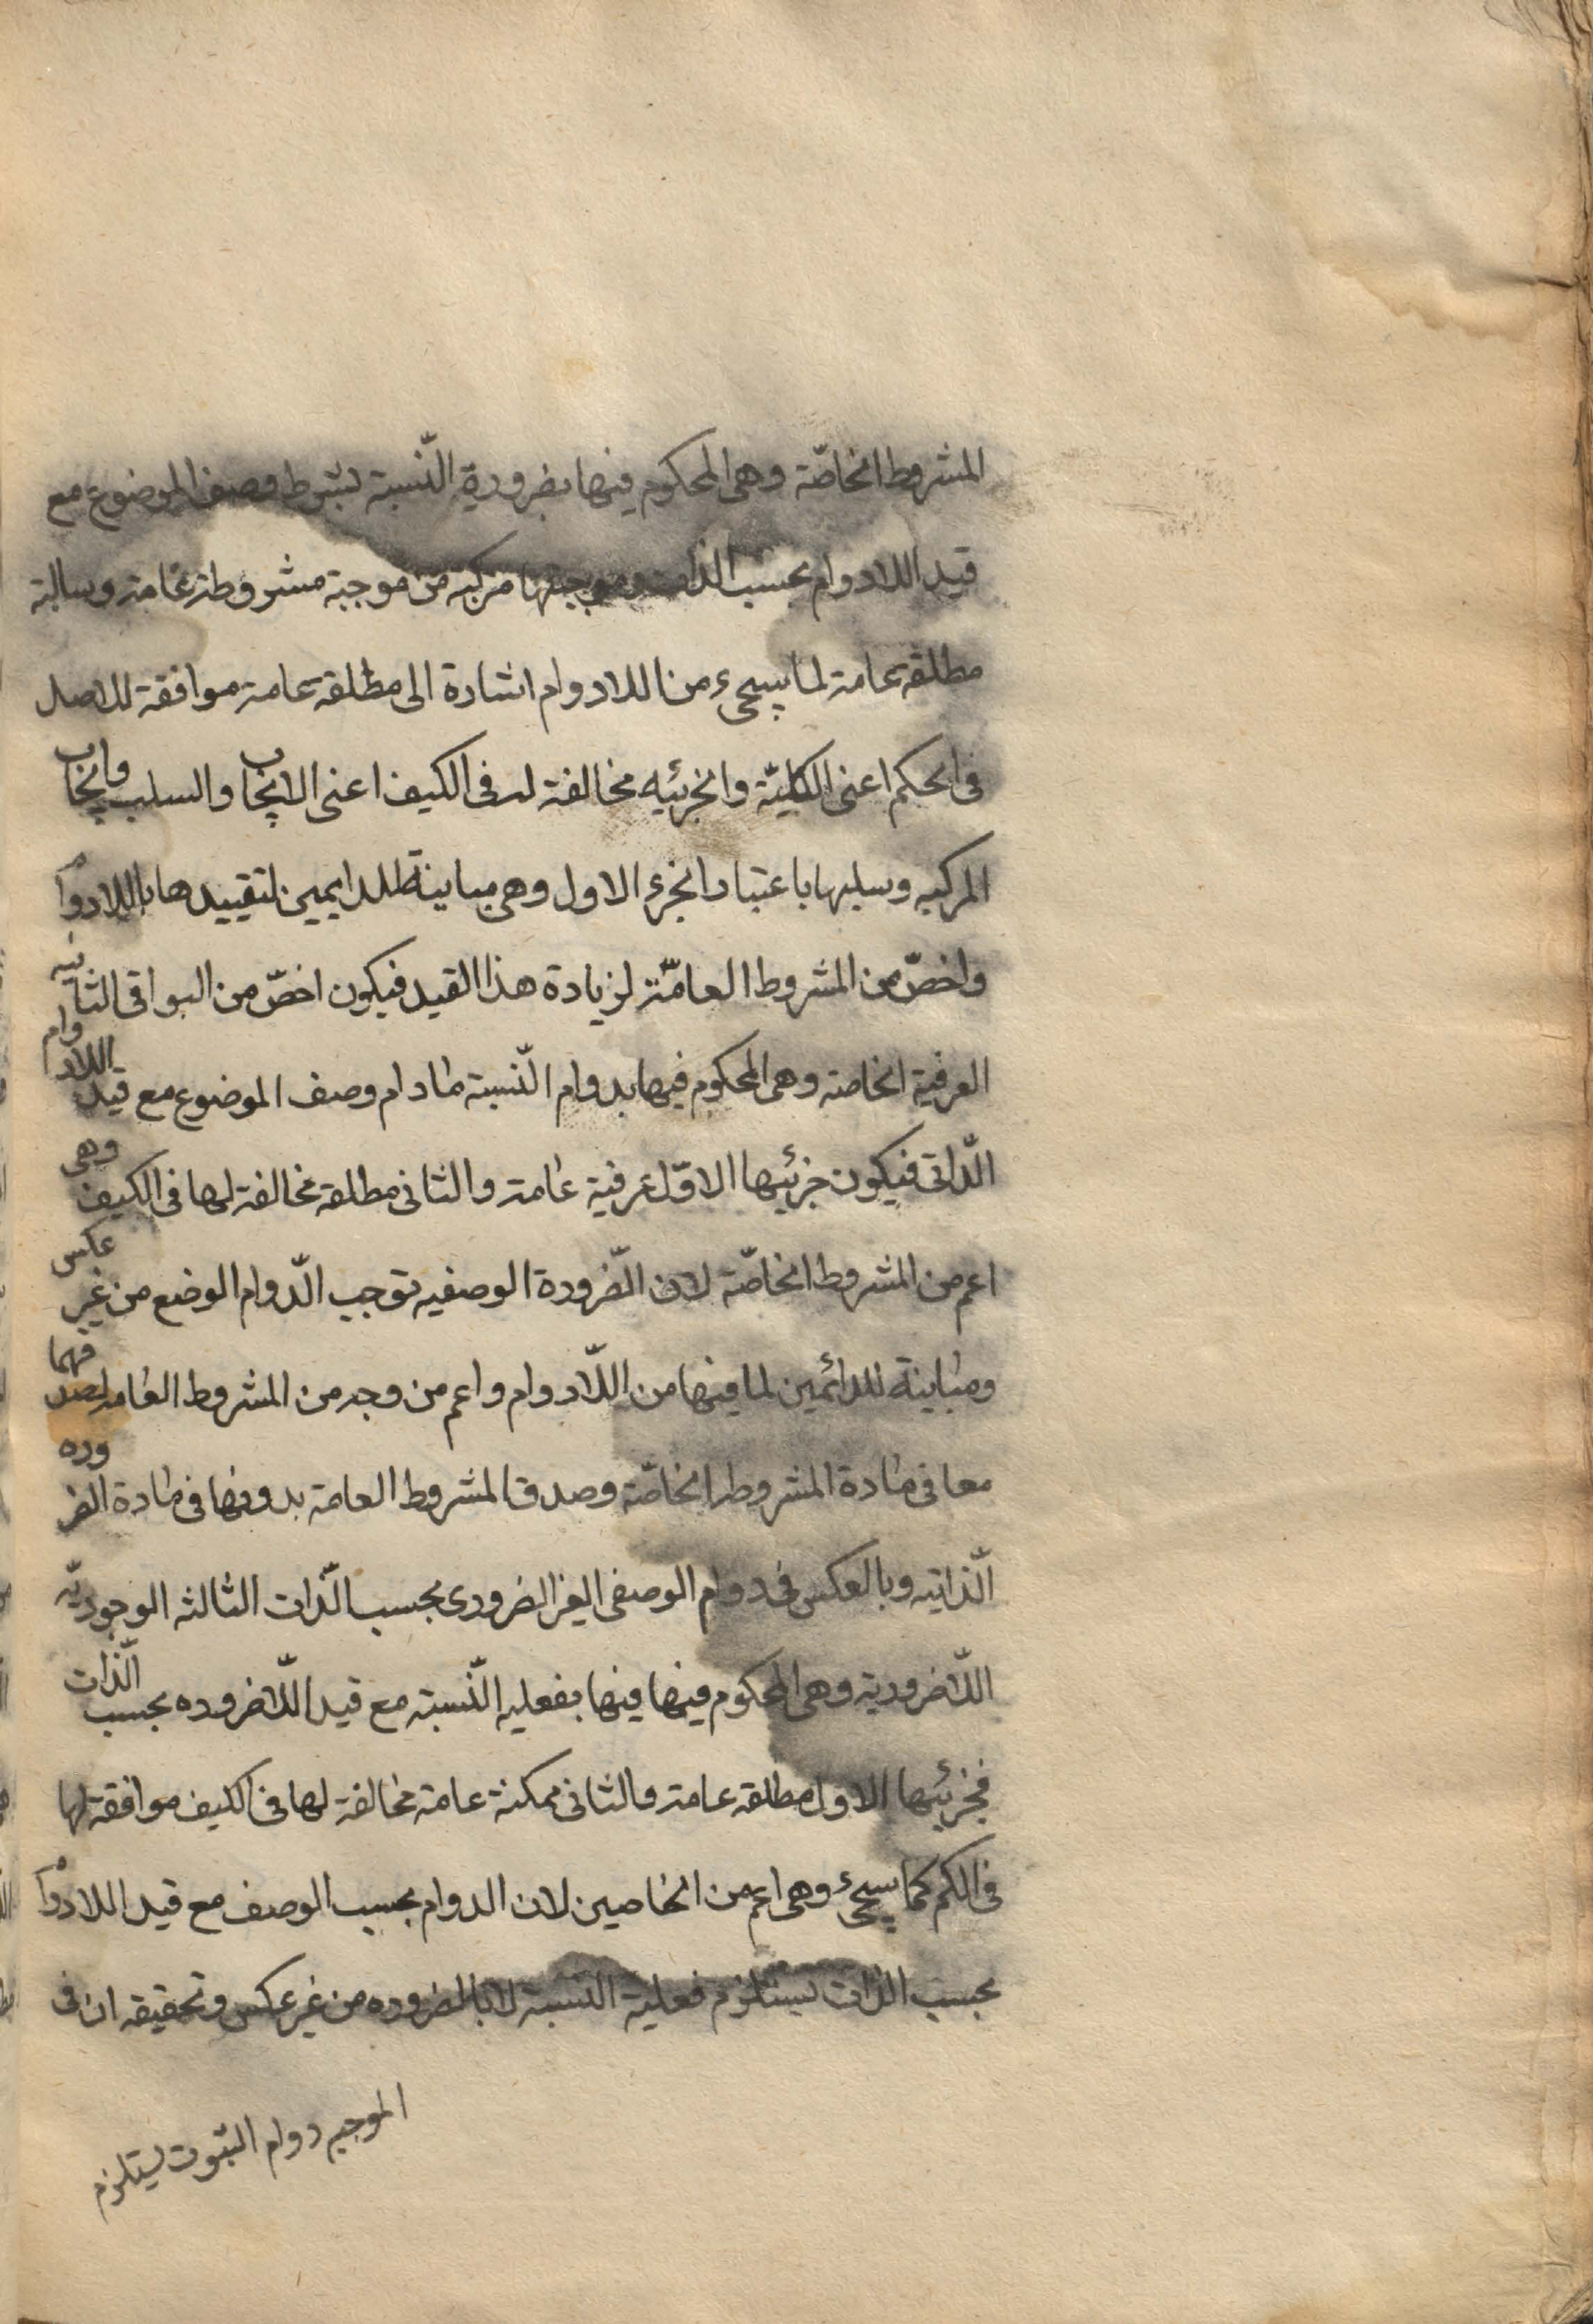 المشروط الخاصّة وهى المحكوم فيها بضرورية النّسبة بشرط وصف الموضوع مع
قيد اللادوام بحسب الذات وموجبتها مركبه من موجبة مشروطة عامة وسالبة
مطلقة عامة لما سيجىء من اللادوام اشارة الى مطلقة عامة موافقة للاصل
فى الحكم اعنى الكليّة والجزئيه مخالفة له فى الكيف اعنى الايجاب والسلب وايجاب
المركبه وسلبها باعتبار الجزء الاول وهى مباينة للدايمين لتقييدها باللادوام
واخصّ من المشروط العامّة لزيادة هذا القيد فيكون اخصّ من البواقى الثانيه
العرفية الخاصة وهى المحكوم فيها بدوام النّسبة مادام وصف الموضوع مع قيد اللادوام
الذّاتى فيكون جزئيها الاوّل عرفية عامة والثانى مطلقة مخالفة لها فى الكيف وهى
اعم من المشروط الخاصّة لان الضّرورة الوصفيه توجب الدّوام الوضع من غير عكس
ومباينة للدائمين لما فيها من اللّادوام واعم من وجه من المشروط العامه لصدقهما
معا فى مادة المشروط الخاصّة وصدق المشروط العامة بدونها فى مادة الضروره
الذّاتيه وبالعكس فى دوام الوصفى الغير الضرورى بحسب الذّات الثالثه الوجوديّه
اللّاضرورية وهى المحكوم فيها فيها بفعليه النّسبة مع قيد اللّاضروره بحسب الذّات
فجزئيها الاول مطلقة عامة والثانى ممكنة عامة مخالفة لها فى الكيف موافقة لها
فى الكم كما سيجىء وهى اعم من الخاصين لان الدوام بحسب الوصف مع قيد اللادوام
بحسب الذات يستلزم فعلية النسبة لا بالضروره من غير عكس وتحقيقه ان فى
الموجبه دوام الثبوت يستلزم